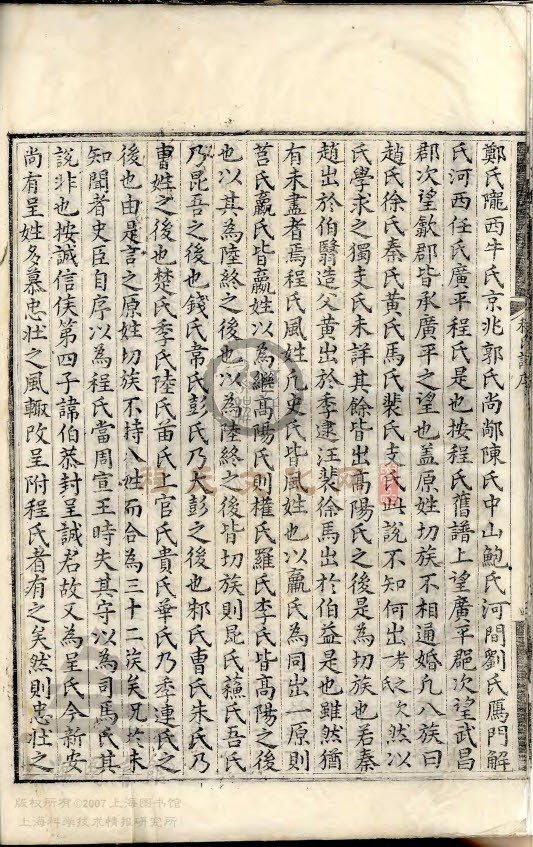 鄭氏隴西牛氏京兆郭氏尚鄰陳氏中山鮑氏河間劉氏鴈門解
氏河西任氏廣平程氏是也按程氏舊譜上望廣平郡次望武昌
郡次望歙郡皆承廣平之望也盖原姓切族不相通婚凡八族曰
趙氏徐氏秦氏黄氏馬氏裴氏支氏此說不知何出考之次然以
氏學求之獨支氏未詳其餘皆出高陽氏之後是為切族也若秦
趙出於伯翳造父黄出於季逮汪裴徐馬出於伯益是也雖然猶
有未盡者焉程氏風姓凡史氏皆風姓也以嬴氏為同出一原則
莒氏嬴氏皆嬴姓以為繼高陽氏則權氏羅氏李氏皆高陽之後
也以其為陸終之後也以為陸終之後皆切族則昆氏蘇氏吾氏
乃昆吾之後也錢氏韋氏彭氏乃大彭之後也邾氏曹氏朱氏乃
曹姓之後也楚氏季氏陸氏苗氏上官氏貴氏華氏乃季連氏之
後也由是言之原姓切族不持八姓而合為三十二族矣况於未
知聞者史臣自序以為程氏當周宣王時失其守以為司馬氏其
說非也按誠信侯第四子諱伯恭封呈誠君故又為呈氏今新安
尚有呈姓多慕忠壯之風輙改呈附程氏者有之矣然則忠壯之
程氏譜序
程氏文化网
版权所有©2007上海图书馆
上海科学技术情报研究所